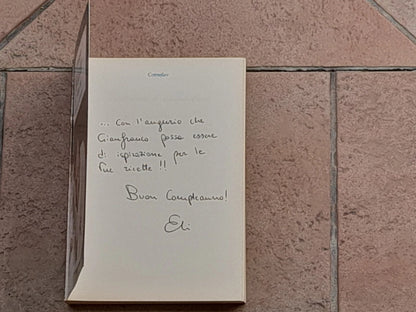 ... Con l'augurio che
Gianfranco possa essere
di ispirazione per le
tue ricette !!
Buon Compleanno!
Eli